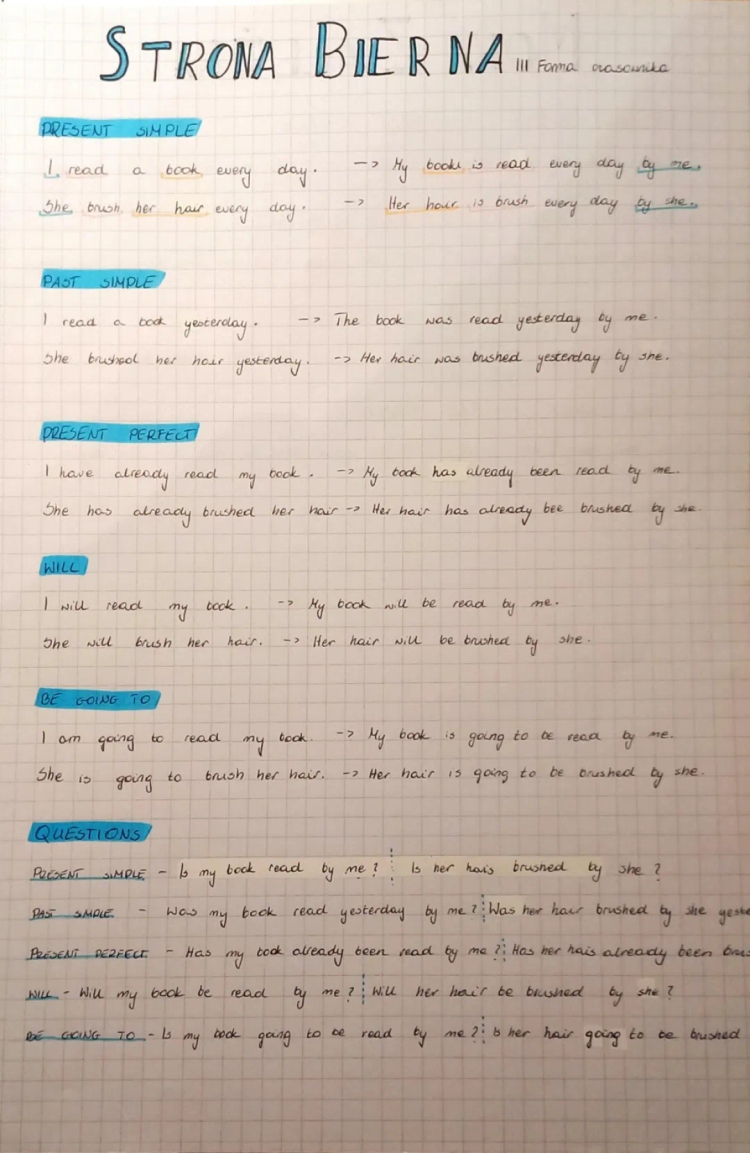 STRONA BIERNA III Forma czasownika
PRESENT SIMPLE
I read a book every day. -> My book is read every day by me.
She brush her hair every day. -> Her hair is brush every day by she.
PAST SIMPLE
I read a book yesterday. -> The book was read yesterday by me.
She brushed her hair yesterday. -> Her hair was brushed yesterday by she.
PRESENT PERFECT
I have already read my book. -> My book has already been read by me.
She has already brushed her hair -> Her hair has already bee brushed by she.
WILL
I will read my book. -> My book will be read by me.
She will brush her hair. -> Her hair will be brushed by she.
BE GOING TO
I am going to read my book. -> My book is going to be read by me.
She is going to brush her hair. -> Her hair is going to be brushed by she.
QUESTIONS
PRESENT SIMPLE - Is my book read by me? Is her hair brushed by she?
PAST SIMPLE - Was my book read yesterday by me? Was her hair brushed by she yeste
PRESENT PERFECT - Has my book already been read by me? Has her hair already been brus
WILL - Will my book be read by me? Will her hair be brushed by she?
BE GOING TO - Is my book going to be read by me? Is her hair going to be brushed